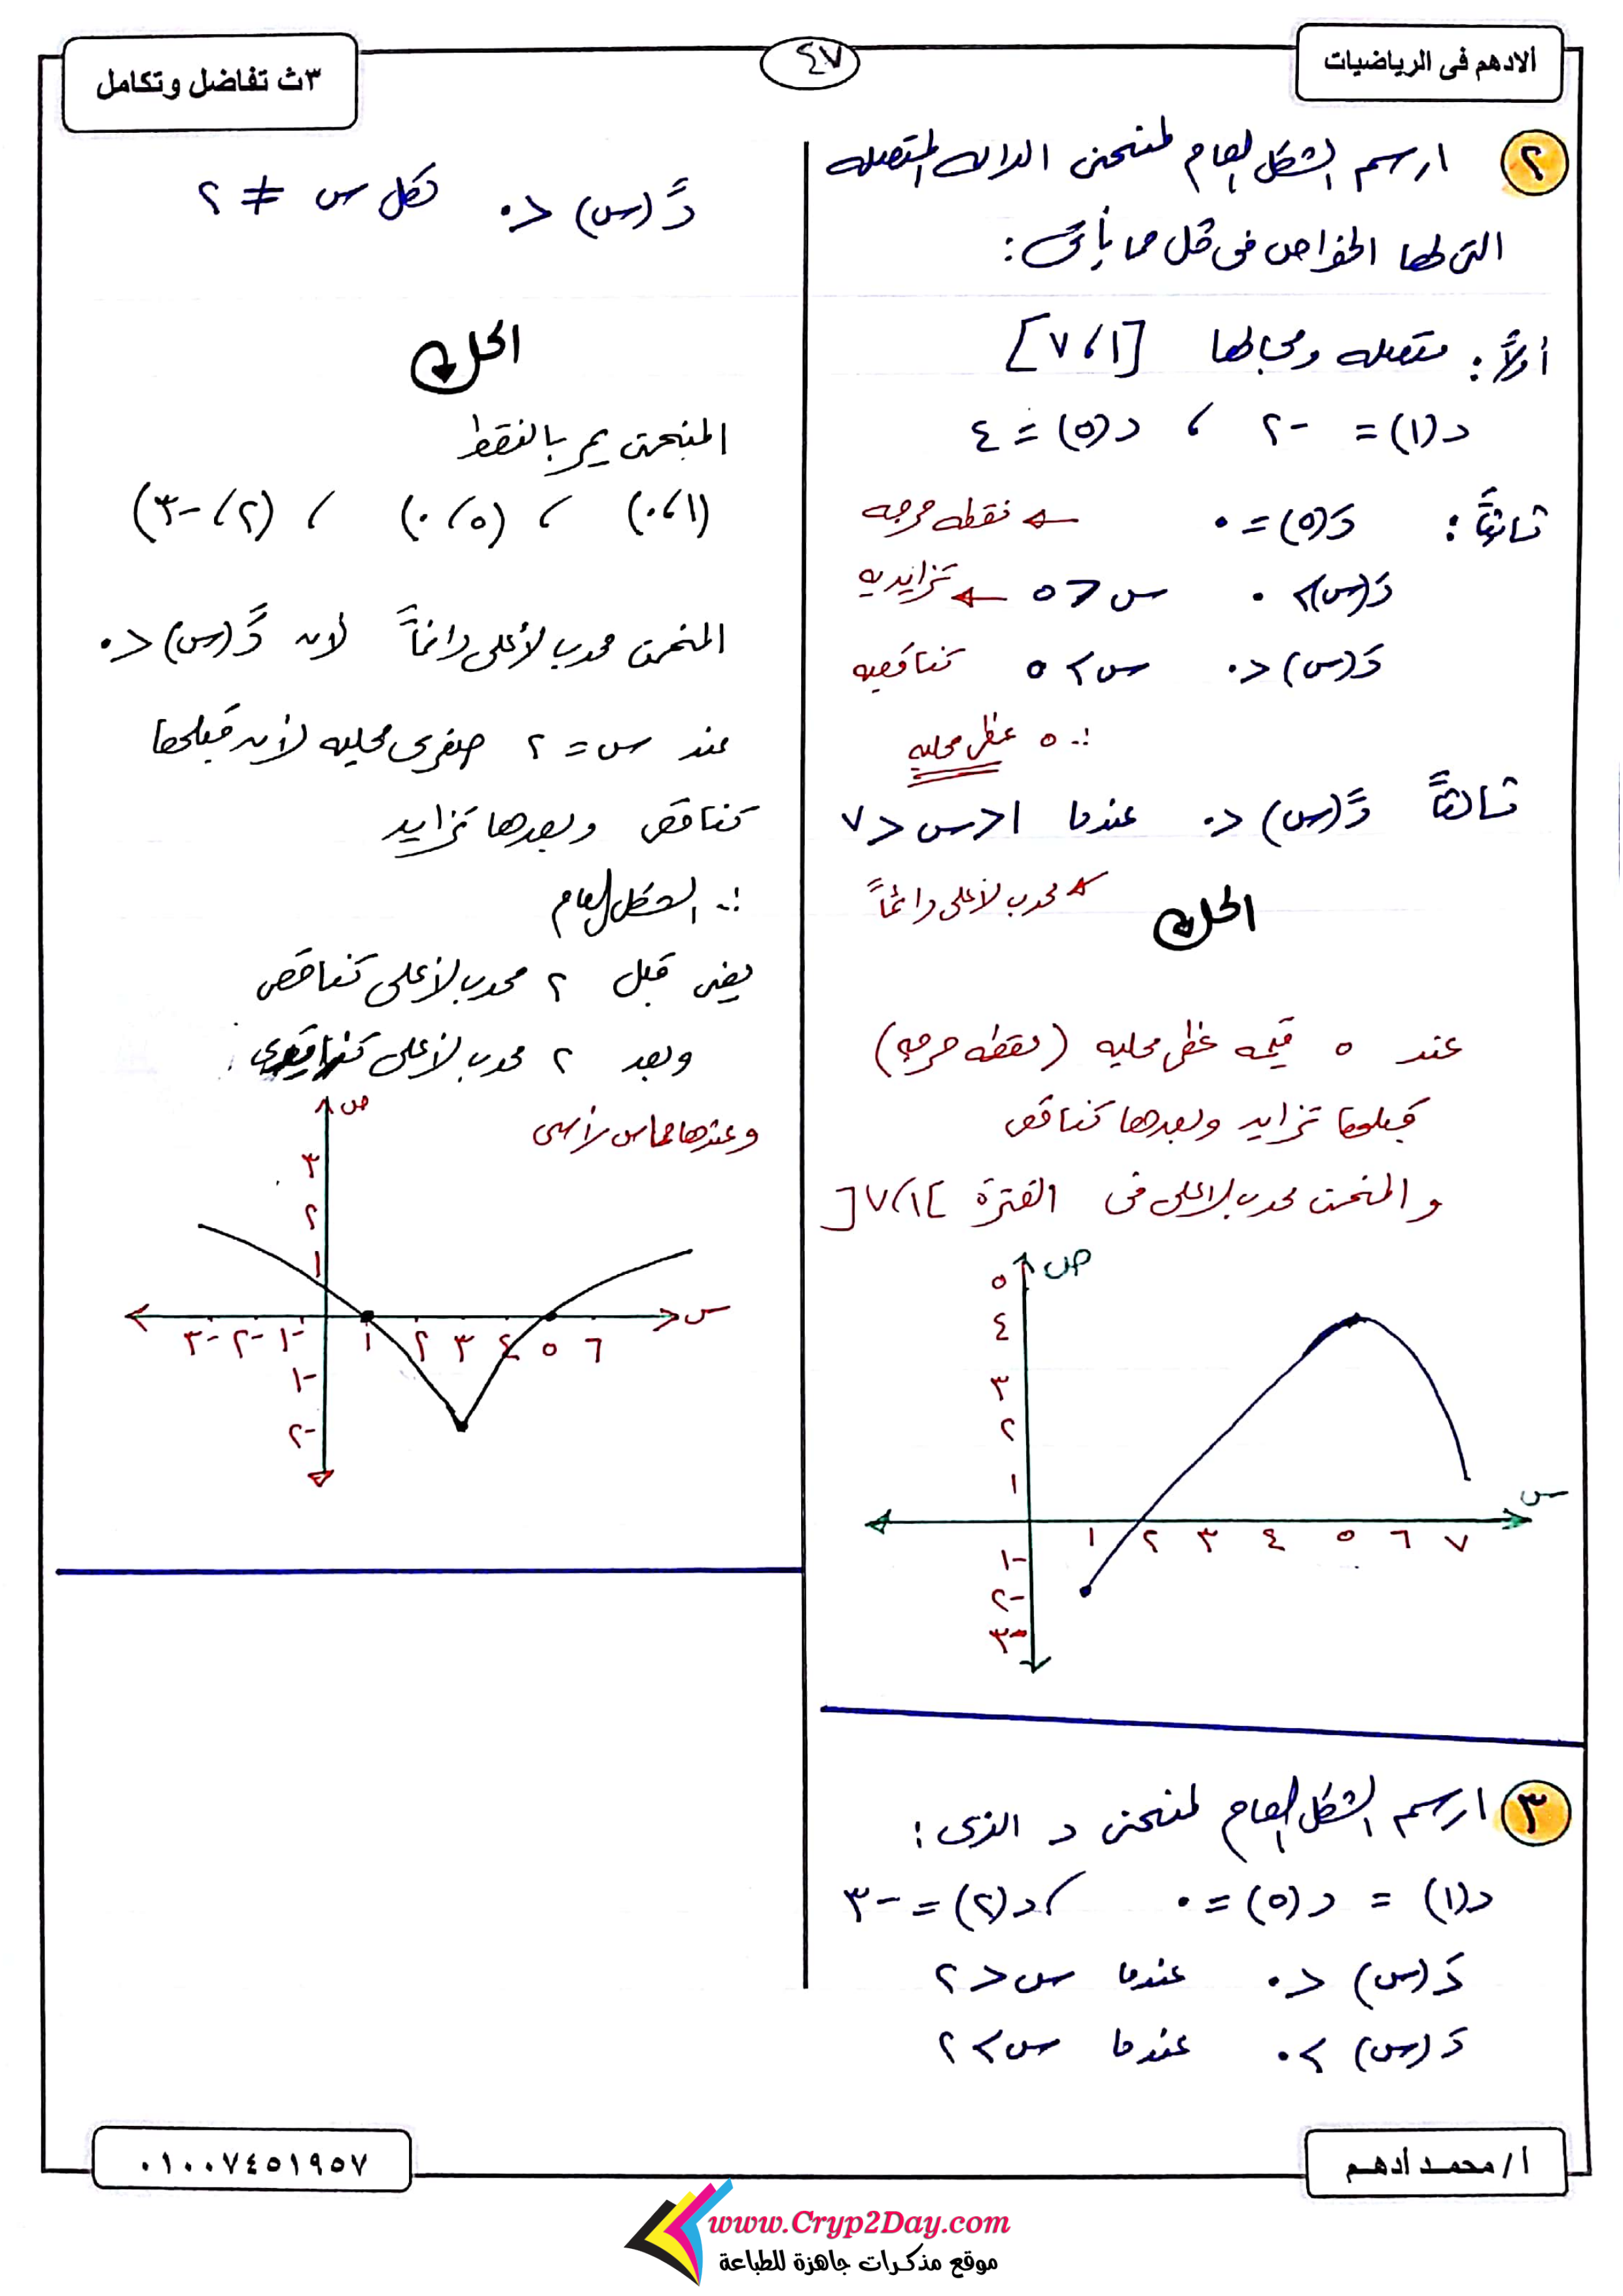 الادهم فى الرياضيات
٤٧
٣ث تفاضل وتكامل
٢ ارسم الشكل العام لمنحنى الدالة المتصله
التى لها الخواص فى كل مما يأتى :
أولاً : متصله ومجالها [١ ، ٧]
د(١) = -٢ ، د(٥) = ٤
ثانياً : دَ(٥) = ٠ ← نقطه حرجه
دَ(س) > ٠ س < ٥ ← تزايديه
دَ(س) < ٠ س > ٥ تناقصيه
∴ ٥ عظمى محليه
ثالثاً دً(س) < ٠ عندما ١ < س < ٧
← محدب لأعلى دائماً
الحل
عند ٥ قيمه عظمى محليه (نقطه حرجه)
قبلها تزايد وبعدها تناقص
و المنحنى محدب لاعلى فى الفترة ]١ ، ٧[
ص
٥
٤
٣
٢
١
س
١ ٢ ٣ ٤ ٥ ٦ ٧
-١
-٢
-٣
٣ ارسم الشكل العام لمنحنى د الذى :
د(١) = د(٥) = ٠ ، د(٢) = -٣
دَ(س) < ٠ عندما س < ٢
دَ(س) > ٠ عندما س > ٢
دً(س) < ٠ لكل س ≠ ٢
الحل
المنحنى يمر بالنقط
(١ ، ٠) ، (٥ ، ٠) ، (٢ ، -٣)
المنحنى محدب لأعلى دائماً لان دً(س) < ٠
عند س = ٢ صغرى محليه لأن قبلها
تناقص وبعدها تزايد
∴ الشكل العام
يعنى قبل ٢ محدب لأعلى تناقص
وبعد ٢ محدب لأعلى
وعندها مماس رأسى
ص
٣
٢
١
س
-٣ -٢ -١ ١ ٢ ٣ ٤ ٥ ٦
-١
-٢
أ / محمد أدهم
٠١٠٠٧٤٥١٩٥٧
www.Cryp2Day.com
موقع مذكرات جاهزة للطباعة